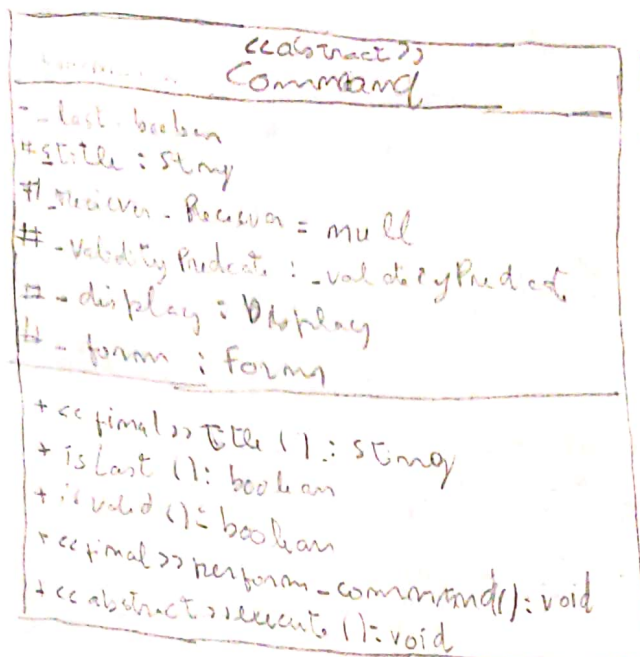 <<abstract>>
Command
- _last : boolean
# _title : String
# _Reciever _ Reciever = null
# _validityPredicate : _validityPredicat
# _display : Display
# _form : Form
+ <<final>> title () : String
+ isLast () : boolean
+ isvalid () : boolean
+ <<final>> perform_command() : void
+ <<abstract>> execute () : void